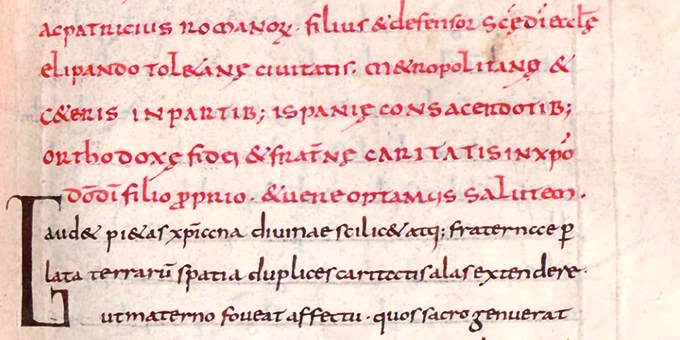 ac patricius romanoꝝ · filius & defensor scę dī ecclę
elipando tol&anę civitatis · m&ropolitanę &
c&eris in partib; ispanię consacerdotib;
orthodoxę fidei & frat̄nę caritatis in xp̄o
do dī filio ꝓprio · & uero optamus salutem ·
Gaud& pi&as xp̄iana divinae scilic& atq; fraternae ꝑ
lata terrarū spatia duplices caritatis alas extendere ·
ut materno foveat affectu · quos sacro genuerat